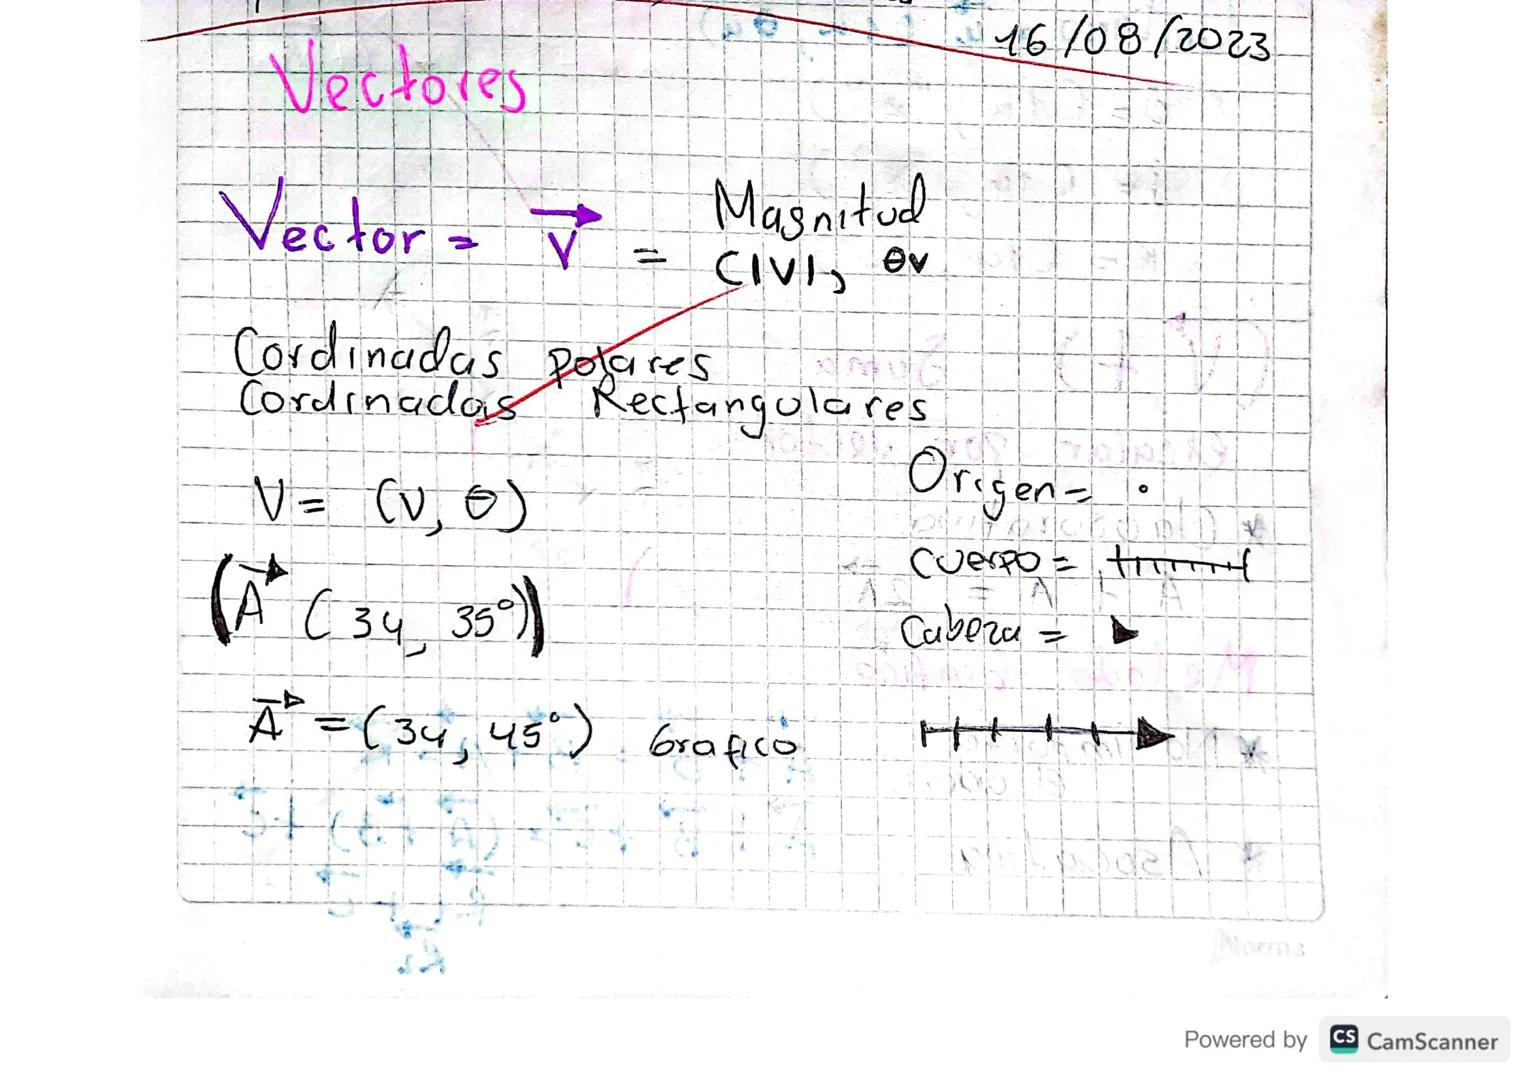 16/08/2023
Vectores
Vector = V = Magnitud
(|V|, θv
Cordinadas polares
Cordinadas Rectangulares
V = (V, θ)
(A (34, 35°))
A = (34, 45°) Grafico
Origen = .
cuerpo =
Cabeza =
Norma
Powered by CS CamScanner